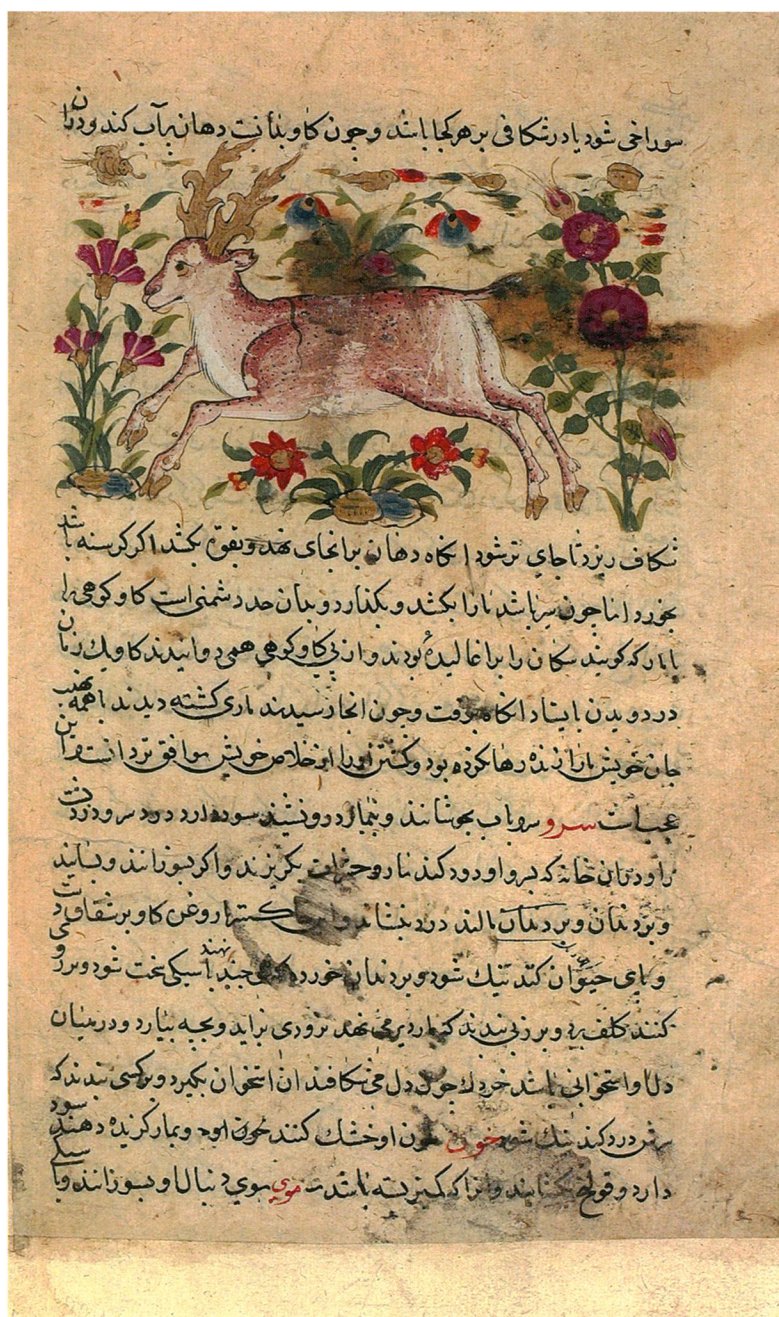 سوراخی شود یا در شکافی بر هر کجا باشد و جون کاو بدانست دهان بر آب کند و دران
شکاف ریزد تا جای تر شود انکاه دهان بر انجای نهد و بقوة بکشد اکر کرسنه باشد
بخورد اما جون سیر باشد مار را بکشد و بکذارد و بدان حد دشمنی است کاو کوهی را
با مار که کویند سکان را برا غالیدۀ بودند و از پی کاو کوهی همی دوانیدند کاو یک زمان
در دویدن بایستاد انکاه برفت و جون انجا رسیدند ماری کشته دیدند با همه نهیب
جان خویش مار را زنده رها نکرده بود و کشتن او را از خلاص خویش موافق تر دانست و این
عجب است سرو سرو باب بجوشانند و بیمار درو نشیند سود دارد درد سرو
را و دران خانه که بسرو او دود کند مار و حشرات بکریزند و اکر بسوزانند و بسایند
و بر دندان مالند درد بنشاند روغن کاو بر شقاق دست
و پای حیوان کند نیک شود و بر دندان خورده نهند سختی شود و بر روی
کنند کلف ببرد و بر زنی بندند که بار دیر می نهد بزودی بزاید و بجه بیارد و در میان
دل او استخوانی باشد خرد جون دل می شکافند ان استخوان بکیرد و بر کسی بندند که
درد کند نیک شود خون خون او خشک کنند و بمار کزیده دهند سود
دارد و قولنج بکشایند و انرا که کمیز بسته باشد موی موی دنبال او بسوزانند و با